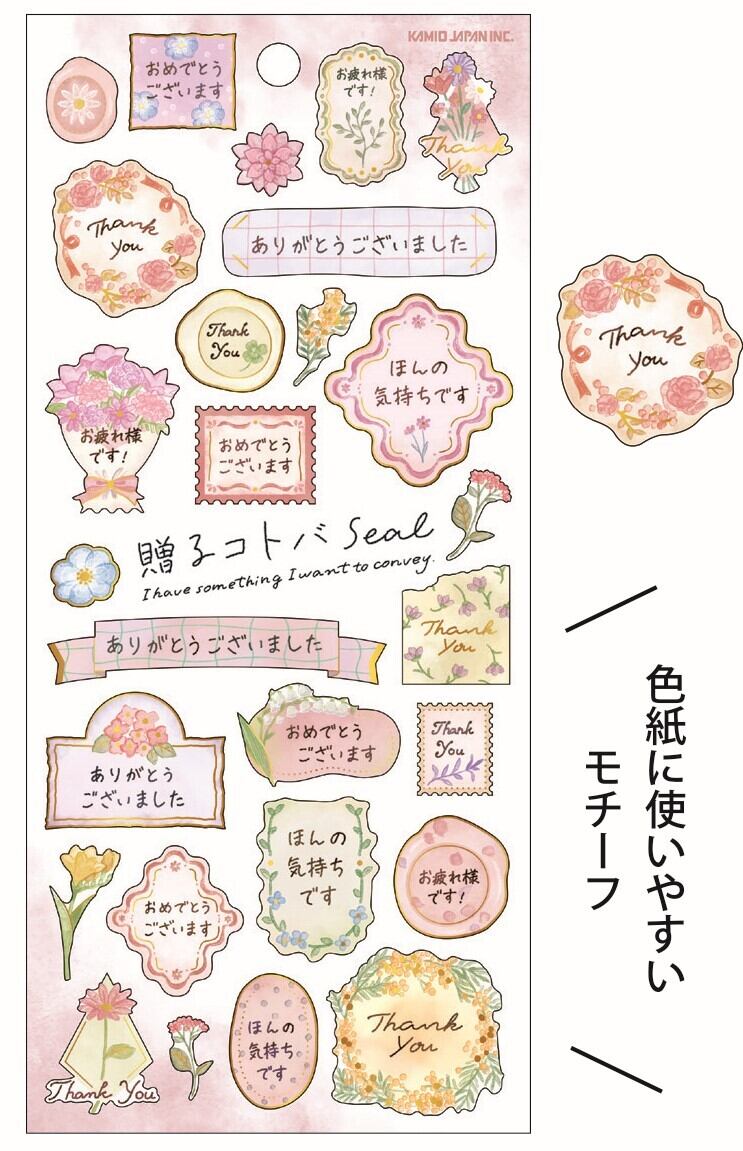 KAMIO JAPAN INC.
おめでとう
ございます
お疲れ様
です!
Thank
You
Thank
You
ありがとうございました
Thank
You
ほんの
気持ちです
お疲れ様
です!
おめでとう
ございます
Thank
You
贈るコトバ Seal
I have something I want to convey.
Thank
You
ありがとうございました
おめでとう
ございます
Thank
You
ありがとう
ございました
ほんの
気持ち
です
お疲れ様
です!
おめでとう
ございます
Thank You
ほんの
気持ち
です
Thank
You
色紙に使いやすい
モチーフ